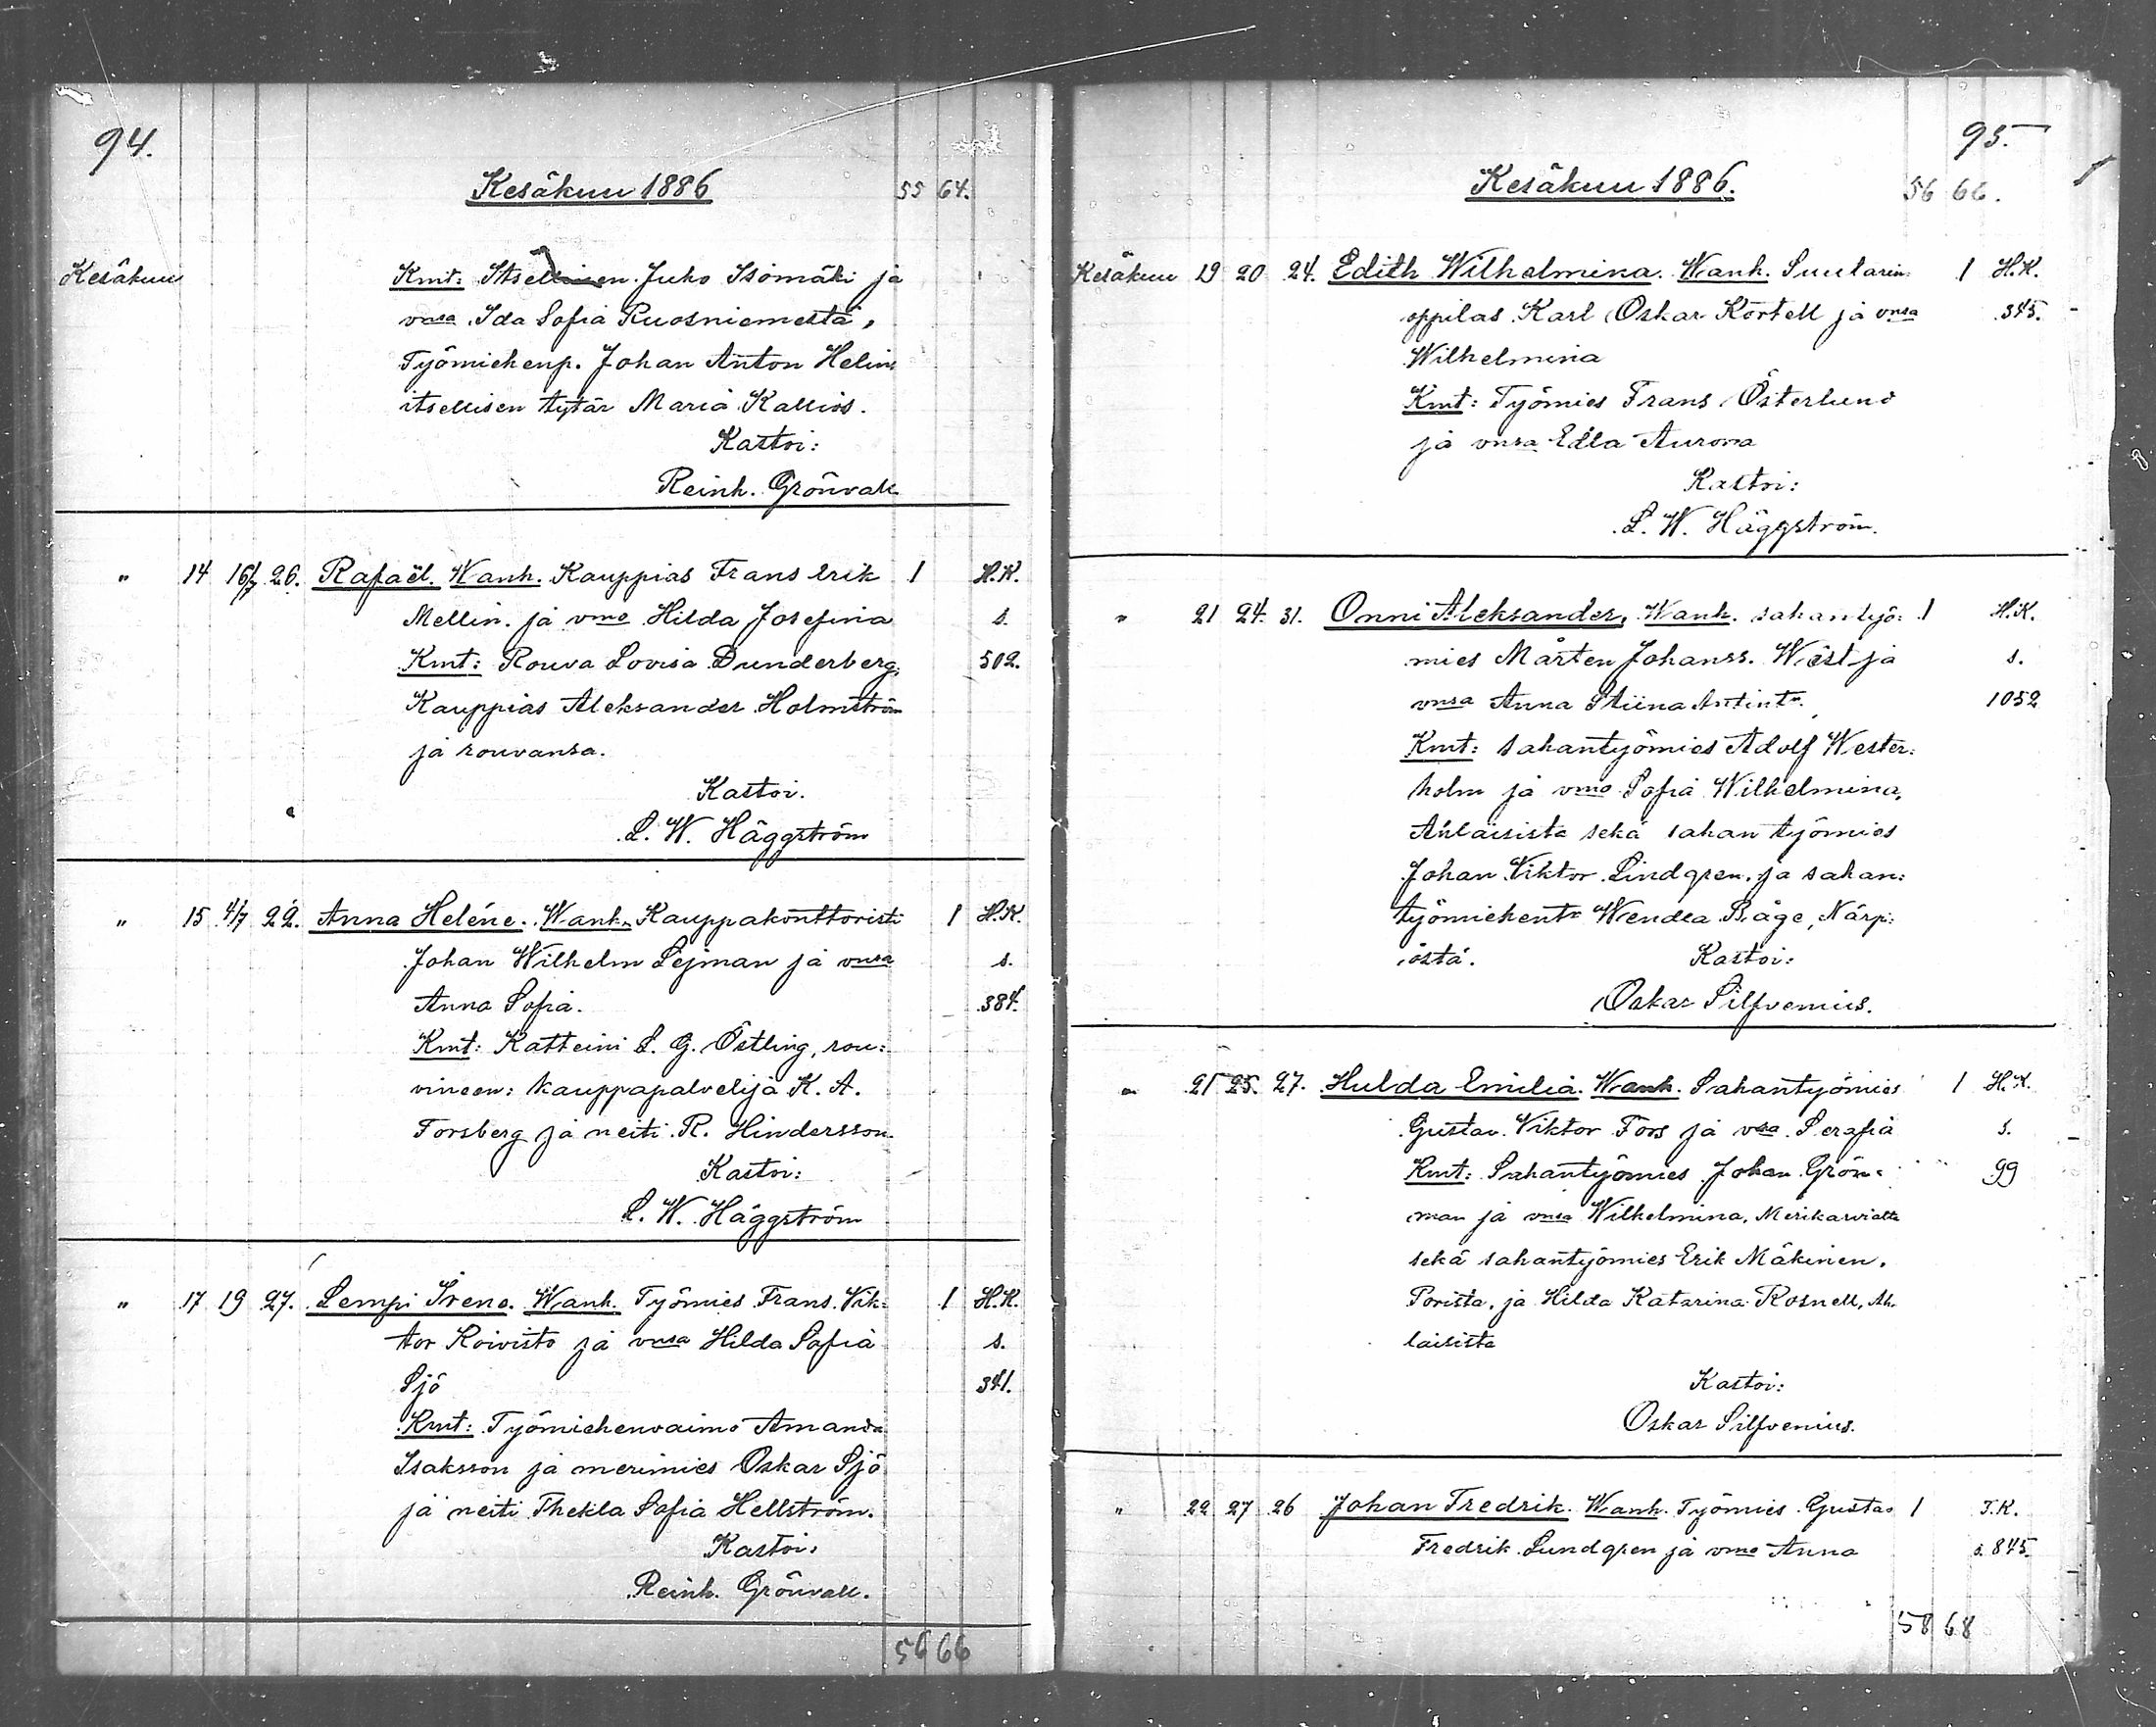 94.
Kesäkuu 1886 55 64.
Kesäkuu Kmt: Itsellisen Juho Isomäki ja
vnsa Ida Sofia Ruosniemestä,
Työmiehenp. Johan Anton Helin
itsellisen tytär Maria Kallios.
Kastoi:
Reinh. Grönvall
" 14 16/7 26. Rafaël. Wanh. Kauppias Frans Erik 1 H.K.
Mellin ja vmo Hilda Josefina s.
Kmt: Rouva Lovisa Dunderberg, 502.
Kauppias Aleksander Holmström
ja rouvansa.
Kastoi.
L. W. Häggström
" 15 4/7 22. Anna Heléne. Wanh. Kauppakonttoristi 1 H.K.
Johan Wilhelm Lejman ja vnsa s.
Anna Sofia. 384.
Kmt: Katteini L. G. Östling, rou:
vineen: kauppapalvelija K. A.
Forsberg ja neiti R. Hindersson.
Kastoi:
L. W. Häggström
" 17 19 27. Lempi Irene. Wanh. Työmies Frans Vik: 1 H.K.
tor Koivisto ja vnsa Hilda Sofia s.
Sjö 341.
Kmt: Työmiehenvaimo Amanda
Isaksson ja merimies Oskar Sjö
ja neiti Thekla Sofia Hellström.
Kastoi:
Reinh. Grönvall.
56 66
95.
Kesäkuu 1886. 56 66.
Kesäkuu 19 20 24. Edith Wilhelmina. Wanh. Suutarin 1 H.K.
oppilas Karl Oskar Kortell ja vnsa 345.
Wilhelmina
Kmt: Työmies Frans Österlund
ja vnsa Edla Aurora
Kastoi:
L. W. Häggström.
" 21 24. 31. Onni Aleksander. Wanh. sahantyö: 1 H.K.
mies Mårten Johanss. Wäst ja s.
vnsa Anna Stiina Antint. 1052
Kmt: sahantyömies Adolf Wester:
holm ja vmo Sofia Wilhelmina,
Ahlaisista sekä sahan työmies
Johan Viktor Lindgren ja sahan:
työmiehentr Wendla Båge, Närp:
iöstä. Kastoi:
Oskar Silfvenius.
" 21 25. 27. Hulda Emilia. Wanh. Sahantyömies 1 H.K.
Gustav Viktor Fors ja vsa Serafia s.
Kmt: Sahantyömies Johan Grön: 99
man ja vnsa Wilhelmina, Merikarvialta
sekä sahantyömies Erik Mäkinen,
Porista, ja Hilda Katarina Rosnell, Ah.
laisista
Kastoi:
Oskar Silfvenius.
" 22 27 26 Johan Fredrik. Wanh. Työmies Gustav 1 T.K.
Fredrik Lundgren ja vmo Anna s. 845.
58 68